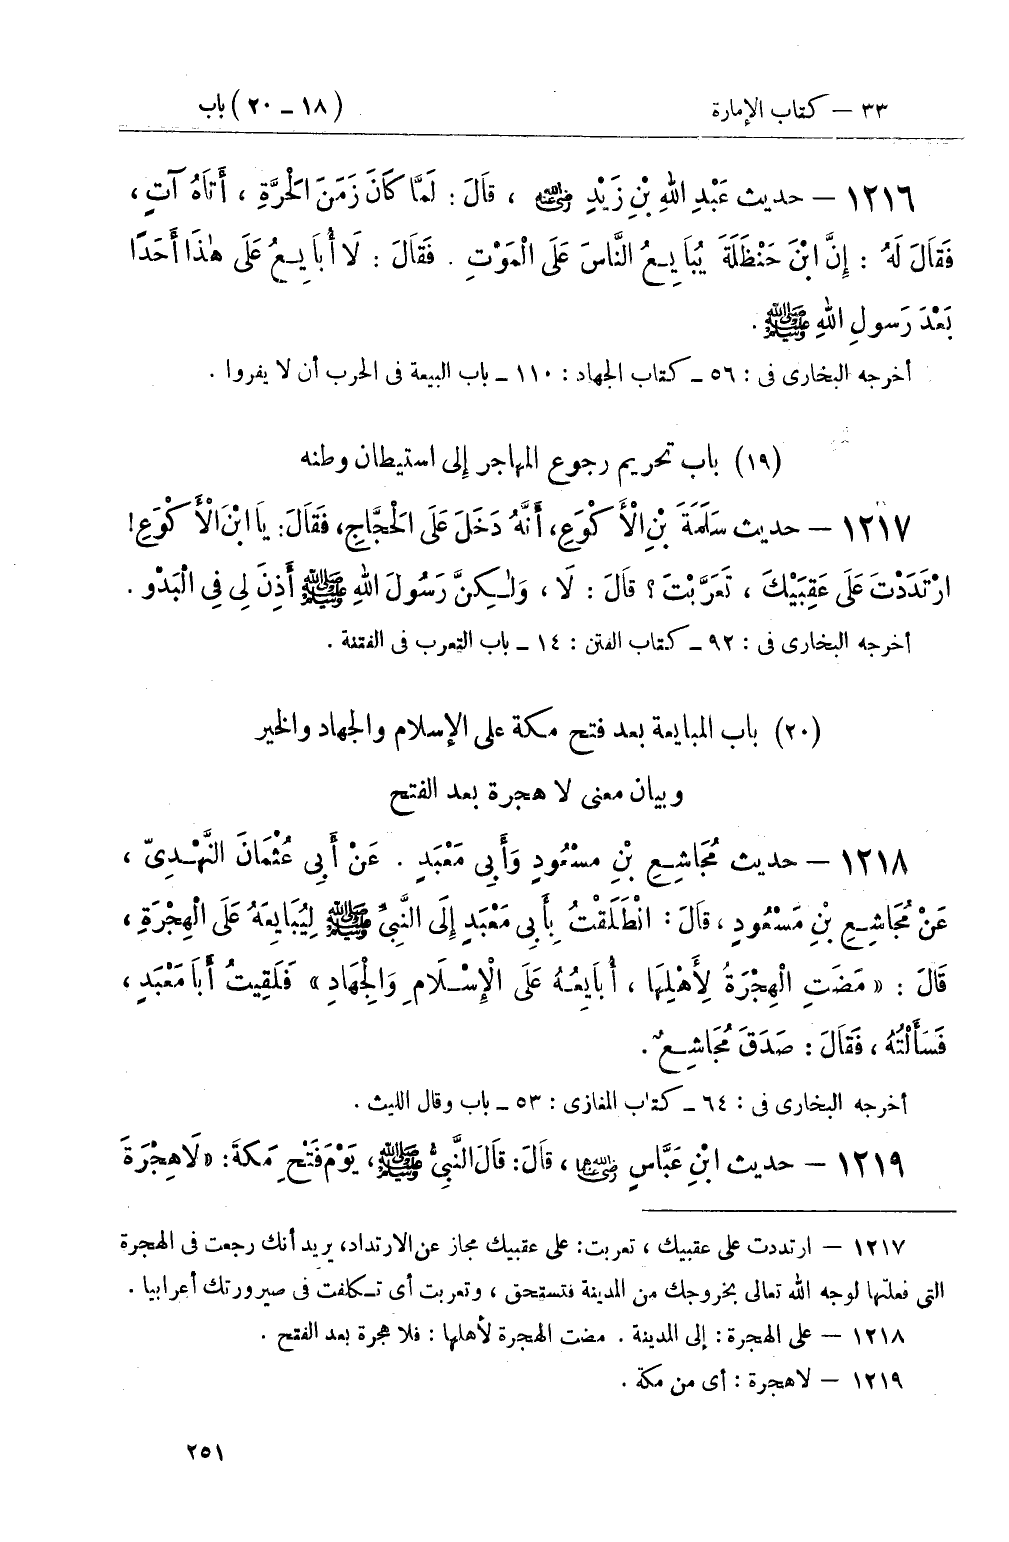 ٣٣ — كتاب الإمارة (١٨ – ٢٠) باب
١٢١٦ — حديث عَبْدِ اللهِ بْنِ زَيْدٍ رضي الله عنه ، قَالَ : لَمَّا كَانَ زَمَنَ الْحَرَّةِ ، أَتَاهُ آتٍ ،
فَقَالَ لَهُ : إِنَّ ابْنَ حَنْظَلَةَ يُبَايِعُ النَّاسَ عَلَى الْمَوْتِ . فَقَالَ : لَا أُبَايِعُ عَلَى هٰذَا أَحَدًا
بَعْدَ رَسولِ اللهِ ﷺ .
أخرجه البخارى فى : ٥٦ ـ كتاب الجهاد : ١١٠ ـ باب البيعة فى الحرب أن لا يفروا .
(١٩) باب تحريم رجوع المهاجر إلى استيطان وطنه
١٢١٧ — حديث سَلَمَةَ بْنِ الْأَكْوَعِ، أَنَّهُ دَخَلَ عَلَى الْحَجَّاجِ، فَقَالَ: يَا ابْنَ الْأَكْوَعِ!
ارْتَدَدْتَ عَلَى عَقِبَيْكَ ، تَعَرَّبْتَ ؟ قَالَ : لَا ، وَلٰكِنَّ رَسُولَ اللهِ ﷺ أَذِنَ لِي فِي الْبَدْوِ .
أخرجه البخارى فى : ٩٢ ـ كتاب الفتن : ١٤ ـ باب التعرب فى الفتنة .
(٢٠) باب المبايعة بعد فتح مكة على الإسلام والجهاد والخير
وبيان معنى لا هجرة بعد الفتح
١٢١٨ — حديث مُجَاشِعِ بْنِ مَسْعُودٍ وَأَبِي مَعْبَدٍ . عَنْ أَبِي عُثْمَانَ النَّهْدِيِّ ،
عَنْ مُجَاشِعِ بْنِ مَسْعُودٍ ، قَالَ : انْطَلَقْتُ بِأَبِي مَعْبَدٍ إِلَى النَّبِيِّ ﷺ لِيُبَايِعَهُ عَلَى الْهِجْرَةِ ،
قَالَ : « مَضَتِ الْهِجْرَةُ لِأَهْلِهَا ، أُبَايِعُهُ عَلَى الْإِسْلَامِ وَالْجِهَادِ » فَلَقِيتُ أَبَا مَعْبَدٍ ،
فَسَأَلْتُهُ ، فَقَالَ : صَدَقَ مُجَاشِعٌ .
أخرجه البخارى فى : ٦٤ ـ كتاب المغازى : ٥٣ ـ باب وقال الليث .
١٢١٩ — حديث ابْنِ عَبَّاسٍ رضي الله عنهما ، قَالَ: قَالَ النَّبِيُّ ﷺ، يَوْمَ فَتْحِ مَكَّةَ: «لَا هِجْرَةَ
١٢١٧ — ارتددت على عقبيك ، تعربت: على عقبيك مجاز عن الارتداد، يريد أنك رجعت فى الهجرة
التى فعلتها لوجه الله تعالى بخروجك من المدينة فتستحق ، وتعربت أى تكلفت فى صيرورتك أعرابيا .
١٢١٨ — على الهجرة : إلى المدينة . مضت الهجرة لأهلها : فلا هجرة بعد الفتح .
١٢١٩ — لا هجرة : أى من مكة .
٢٥١